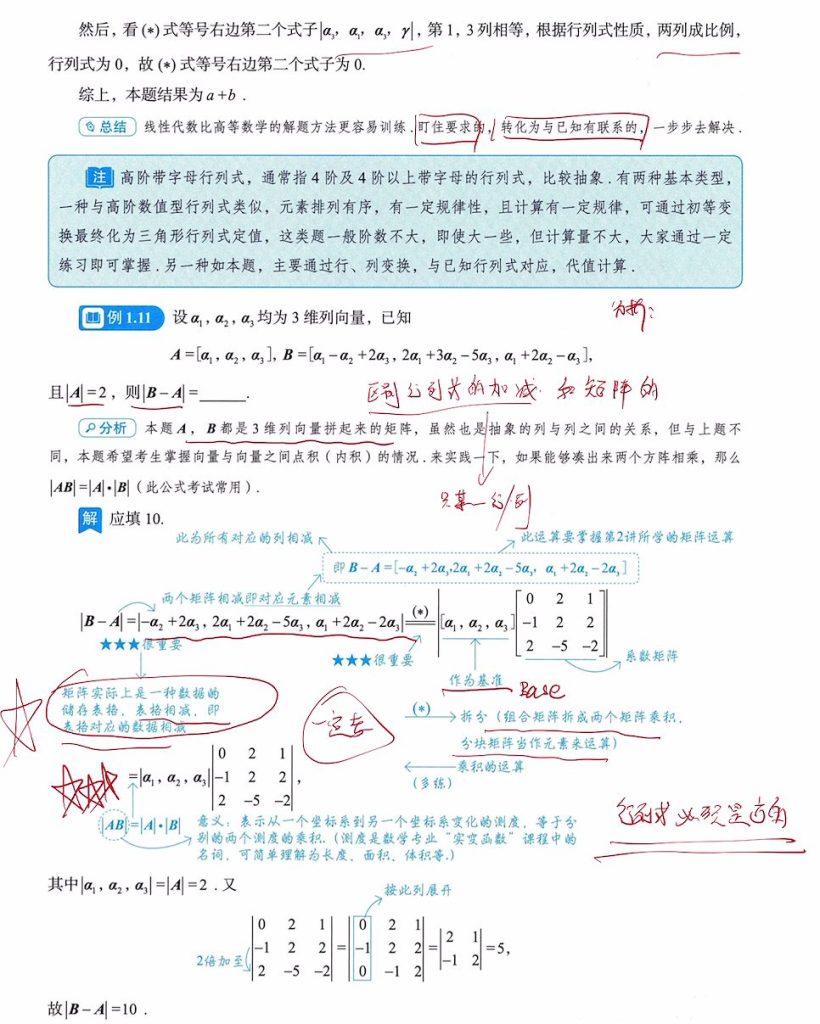 然后，看 (*) 式等号右边第二个式子|α₃，α₁，α₃，γ|，第 1，3 列相等，根据行列式性质，两列成比例，
行列式为 0，故 (*) 式等号右边第二个式子为 0.
综上，本题结果为 a+b .
总结 线性代数比高等数学的解题方法更容易训练 . 盯住要求的，转化为与已知有联系的，一步步去解决 .
注 高阶带字母行列式，通常指 4 阶及 4 阶以上带字母的行列式，比较抽象 . 有两种基本类型，
一种与高阶数值型行列式类似，元素排列有序，有一定规律性，且计算有一定规律，可通过初等变
换最终化为三角形行列式定值，这类题一般阶数不大，即使大一些，但计算量不大，大家通过一定
练习即可掌握 . 另一种如本题，主要通过行、列变换，与已知行列式对应，代值计算 .
分析：
例 1.11 设 α₁，α₂，α₃ 均为 3 维列向量，已知
A=[α₁，α₂，α₃]，B=[α₁−α₂+2α₃，2α₁+3α₂−5α₃，α₁+2α₂−α₃]，
且|A|=2，则|B−A|=______.
区别行列式的加减 和矩阵的
分析 本题 A，B 都是 3 维列向量拼起来的矩阵，虽然也是抽象的列与列之间的关系，但与上题不
同，本题希望考生掌握向量与向量之间点积（内积）的情况 . 来实践一下，如果能够凑出来两个方阵相乘，那么
|AB|=|A|•|B|（此公式考试常用）.
只某一行/列
解 应填 10.
此为所有对应的列相减
此运算要掌握第2讲所学的矩阵运算
即 B−A=[−α₂+2α₃，2α₁+2α₂−5α₃，α₁+2α₂−2α₃]
两个矩阵相减即对应元素相减
|B−A|=|−α₂+2α₃，2α₁+2α₂−5α₃，α₁+2α₂−2α₃| (*)= |[α₁，α₂，α₃] [0 2 1
−1 2 2
2 −5 −2]|
★★★很重要
★★★很重要
系数矩阵
作为基准
Base
矩阵实际上是一种数据的
储存表格，表格相减，即
表格对应的数据相减
(*) 拆分（组合矩阵拆成两个矩阵乘积，
分块矩阵当作元素来运算）
乘积的运算
（多练）
=|α₁，α₂，α₃| |0 2 1
−1 2 2
2 −5 −2|，
行列式必须是方的
|AB|=|A|•|B|
意义：表示从一个坐标系到另一个坐标系变化的测度，等于分
别的两个测度的乘积.（测度是数学专业“实变函数”课程中的
名词，可简单理解为长度、面积、体积等.）
其中|α₁，α₂，α₃|=|A|=2 . 又
按此列展开
|0 2 1| = |0 2 1|
|−1 2 2| = |−1 2 2| = |2 1; −1 2| =5，
|2 −5 −2| = |0 −1 2|
2倍加至
故|B−A|=10 .